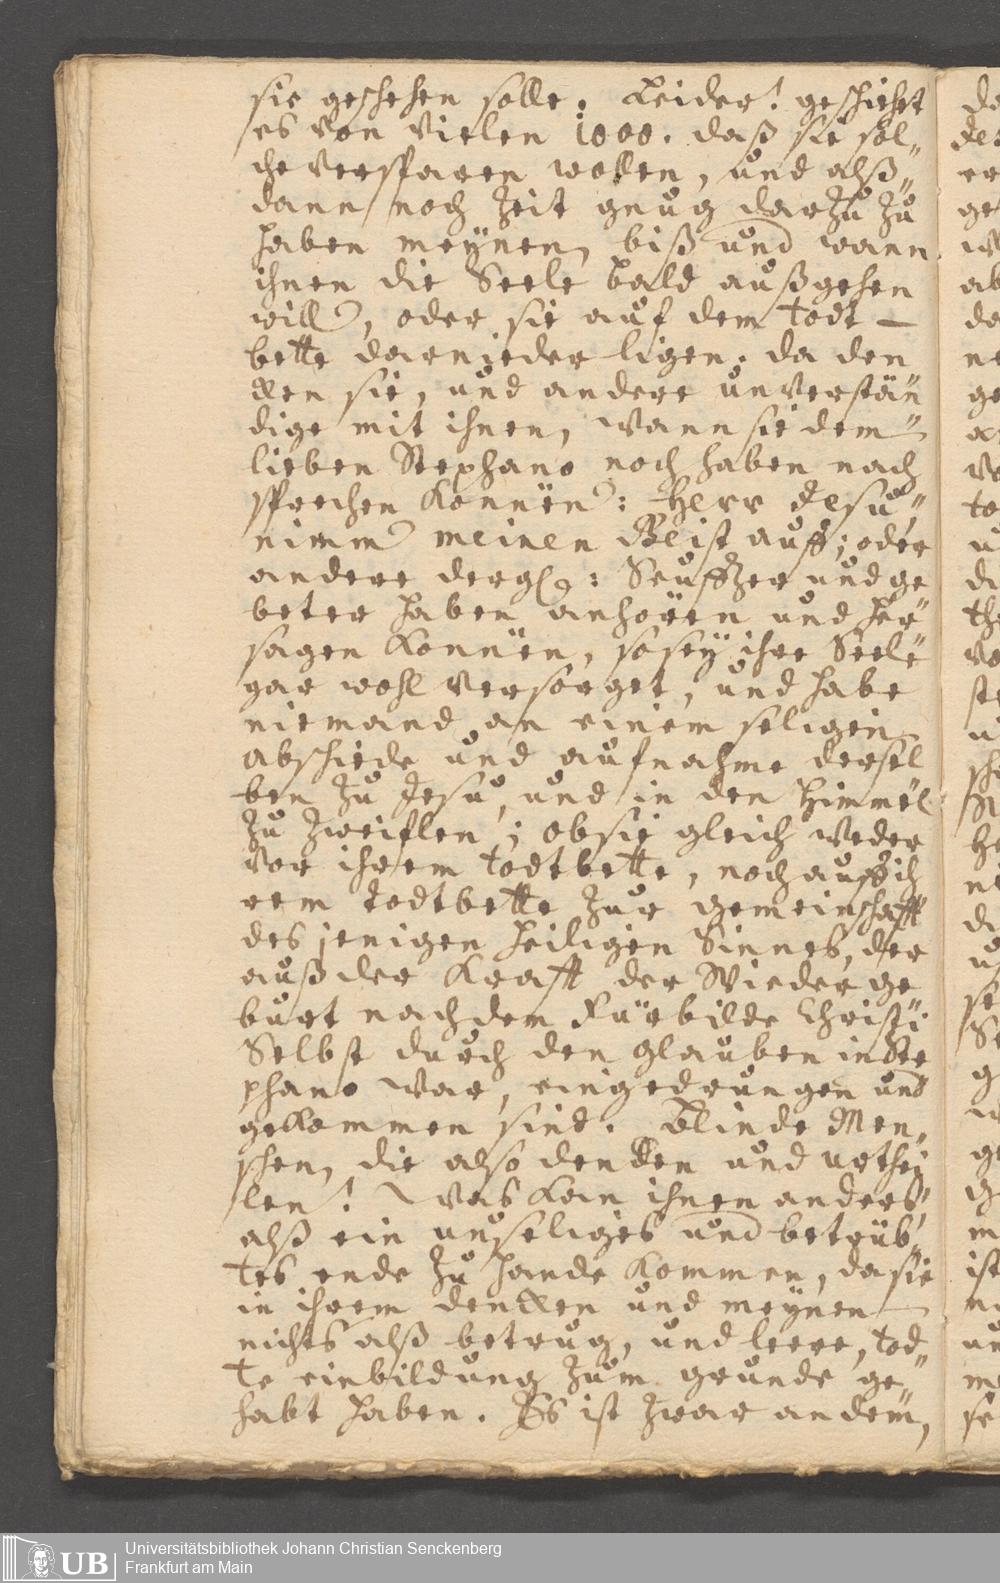 sie geschehen solle. Leider! geschiehet
es von vielen 1000. daß sie sol„
che versparen wollen, und alß„
dann noch Zeit gnug darzu zu
haben meÿnen, biß und wann
ihnen die Seele bald außgehen
will, oder sie auf dem todt –
bette darnieder ligen. da den
cken sie, und andere unverstän„
dige mit ihnen, wann sie dem
lieben Stephano noch haben nach
sprechen können: Herr Jesu„
nimm meinen Geist auff; oder
andere dergl: Seuffzer und ge
beter haben anhören und her„
sagen können, so seÿ ihre Seele
gar wohl versorget, und habe
niemand an einem seligen
abschiede und aufnahme dersel
ben zu Jesu, und in den Himmel
zu zweiflen; ob sie gleich weder
vor ihrem todtbette, noch auff ih
rem todtbette zur gemeinschafft
des jenigen heiligen Sinnes, der
auß der Krafft der Wiederge
burt nach dem Fürbilde Christi
Selbst durch den glauben in Ste
phano war, eingedrungen und
gekommen sind. Blinde Men„
schen, die also dencken und urthei
len! Was kan ihnen anders,
alß ein unseliges und betrüb„
tes ende zu hande kommen, da sie
in ihrem dencken und meÿnen –
nichts alß betrug, und leere, tod„
te einbildung zum grunde ge„
habt haben. Es ist zwar an dem,
UB
Universitätsbibliothek Johann Christian Senckenberg
Frankfurt am Main